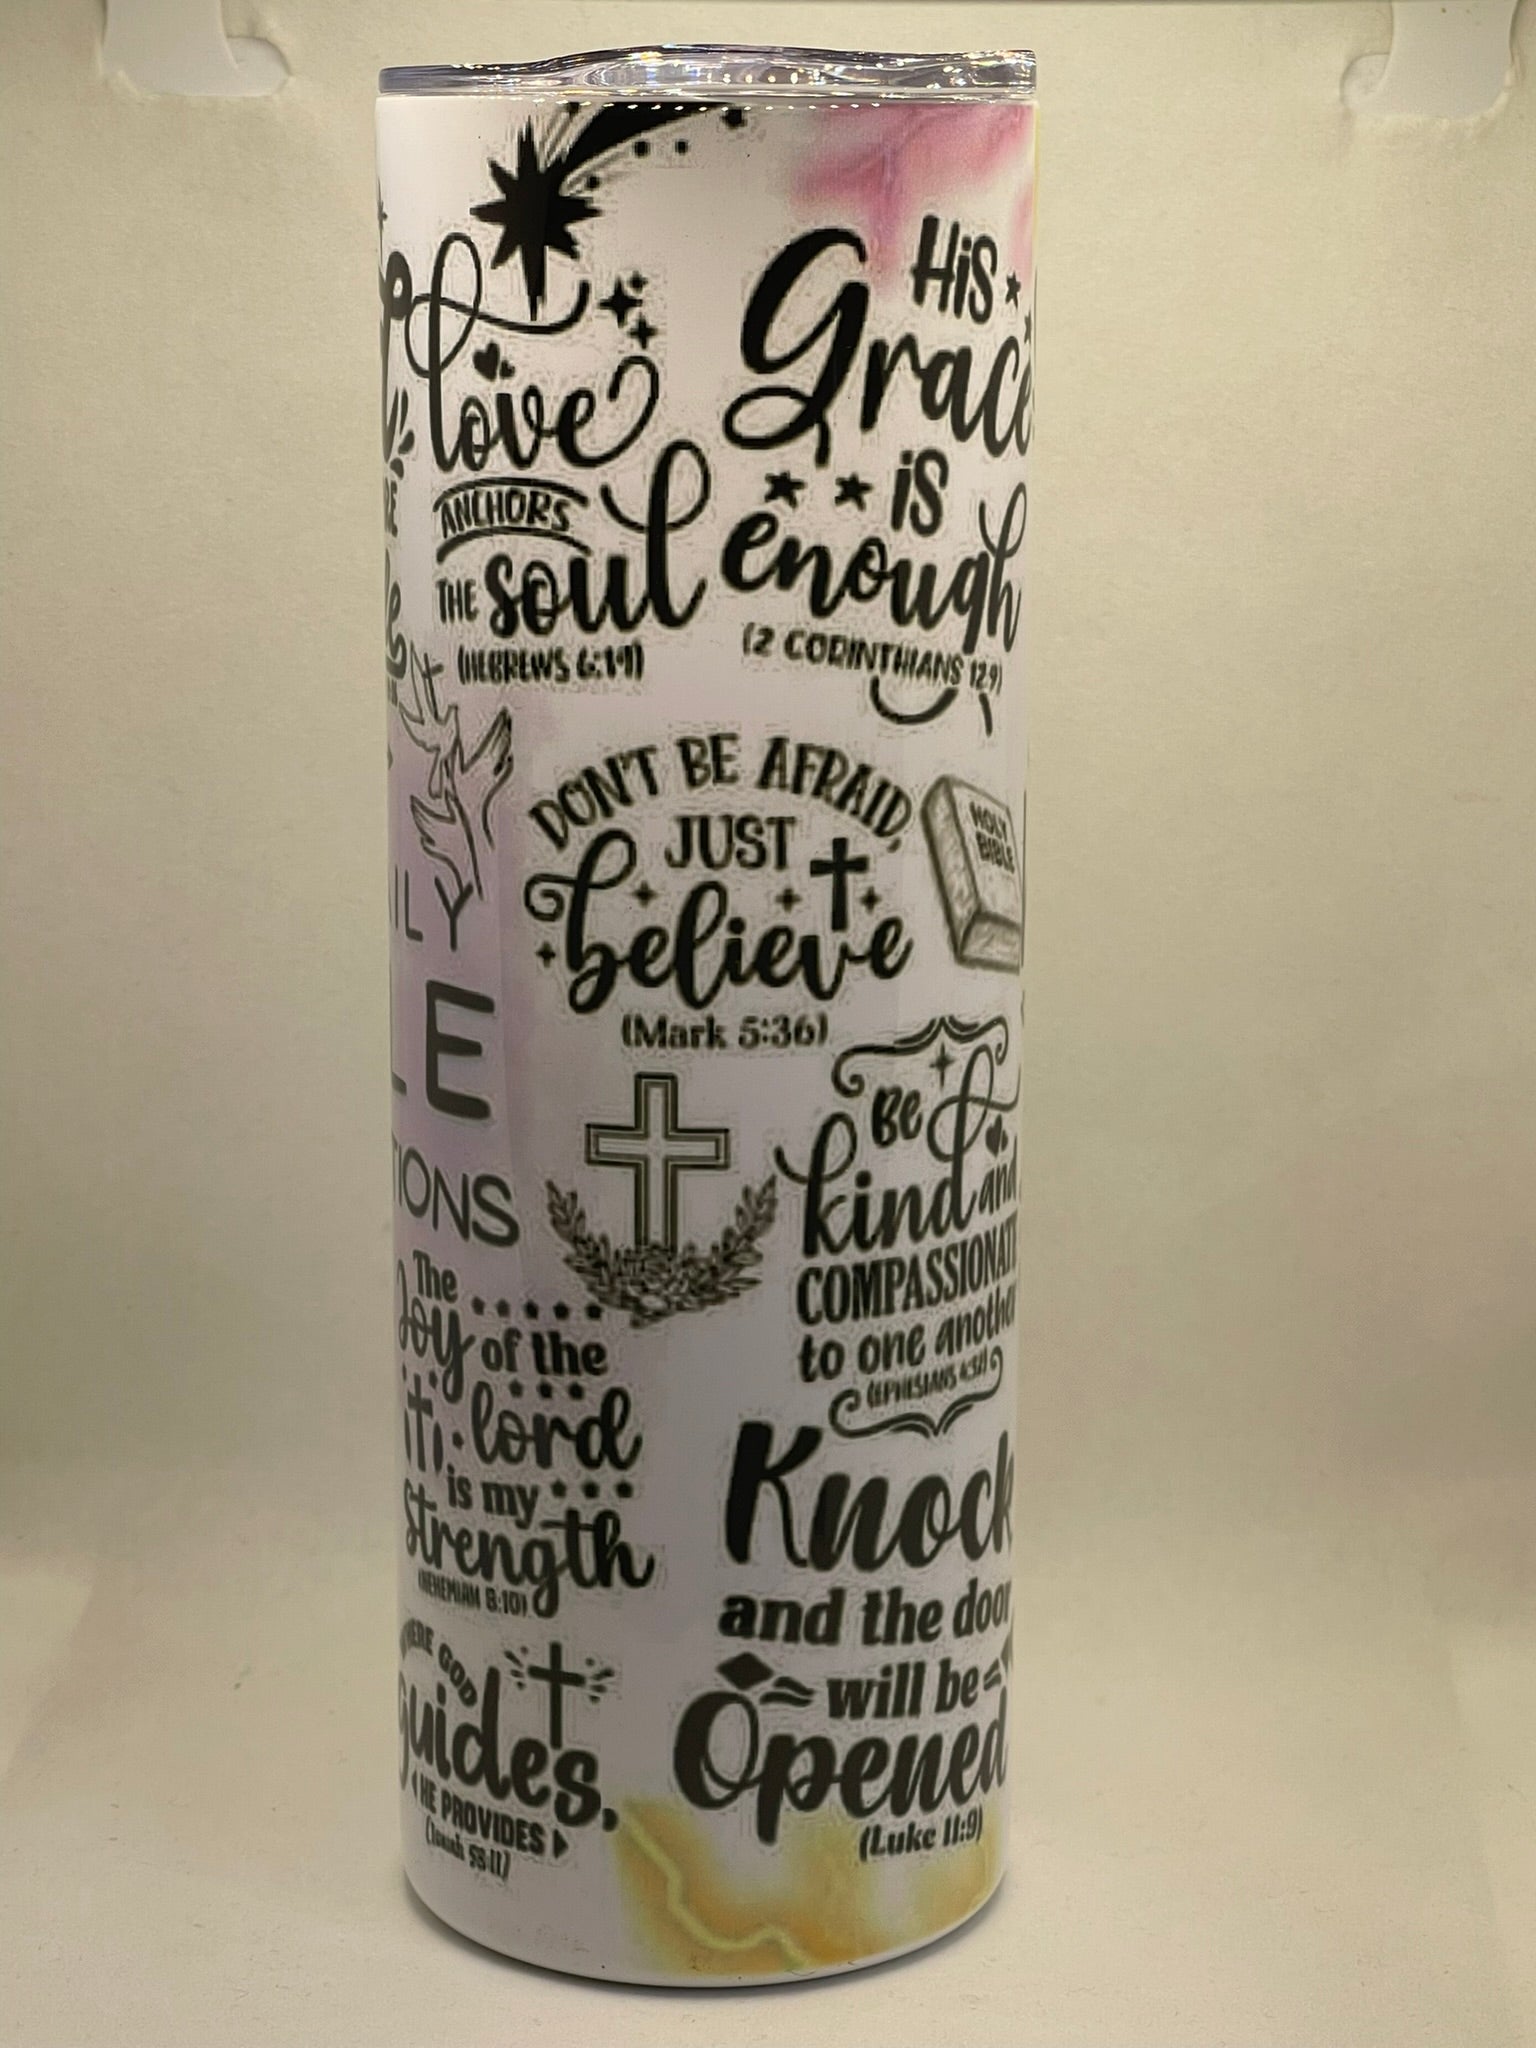 love
ANCHORS
THE soul
(HEBREWS 6:19)
HiS
Grace
iS
enough
(2 CORINTHIANS 12:9)
DON'T BE AFRAID,
JUST
believe
(Mark 5:36)
HOLY
BIBLE
ILY
LE
TIONS
Be
kind and
COMPASSIONATE
to one another
(EPHESIANS 4:32)
The
Joy of the
lord
is my
strength
(NEHEMIAH 8:10)
Knock
and the door
will be
Opened
(Luke 11:9)
HERE GOD
guides,
HE PROVIDES
(Isaiah 58:11)